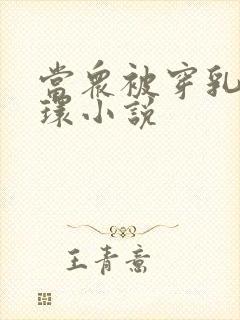 當眾被穿乳
環小說
王青意